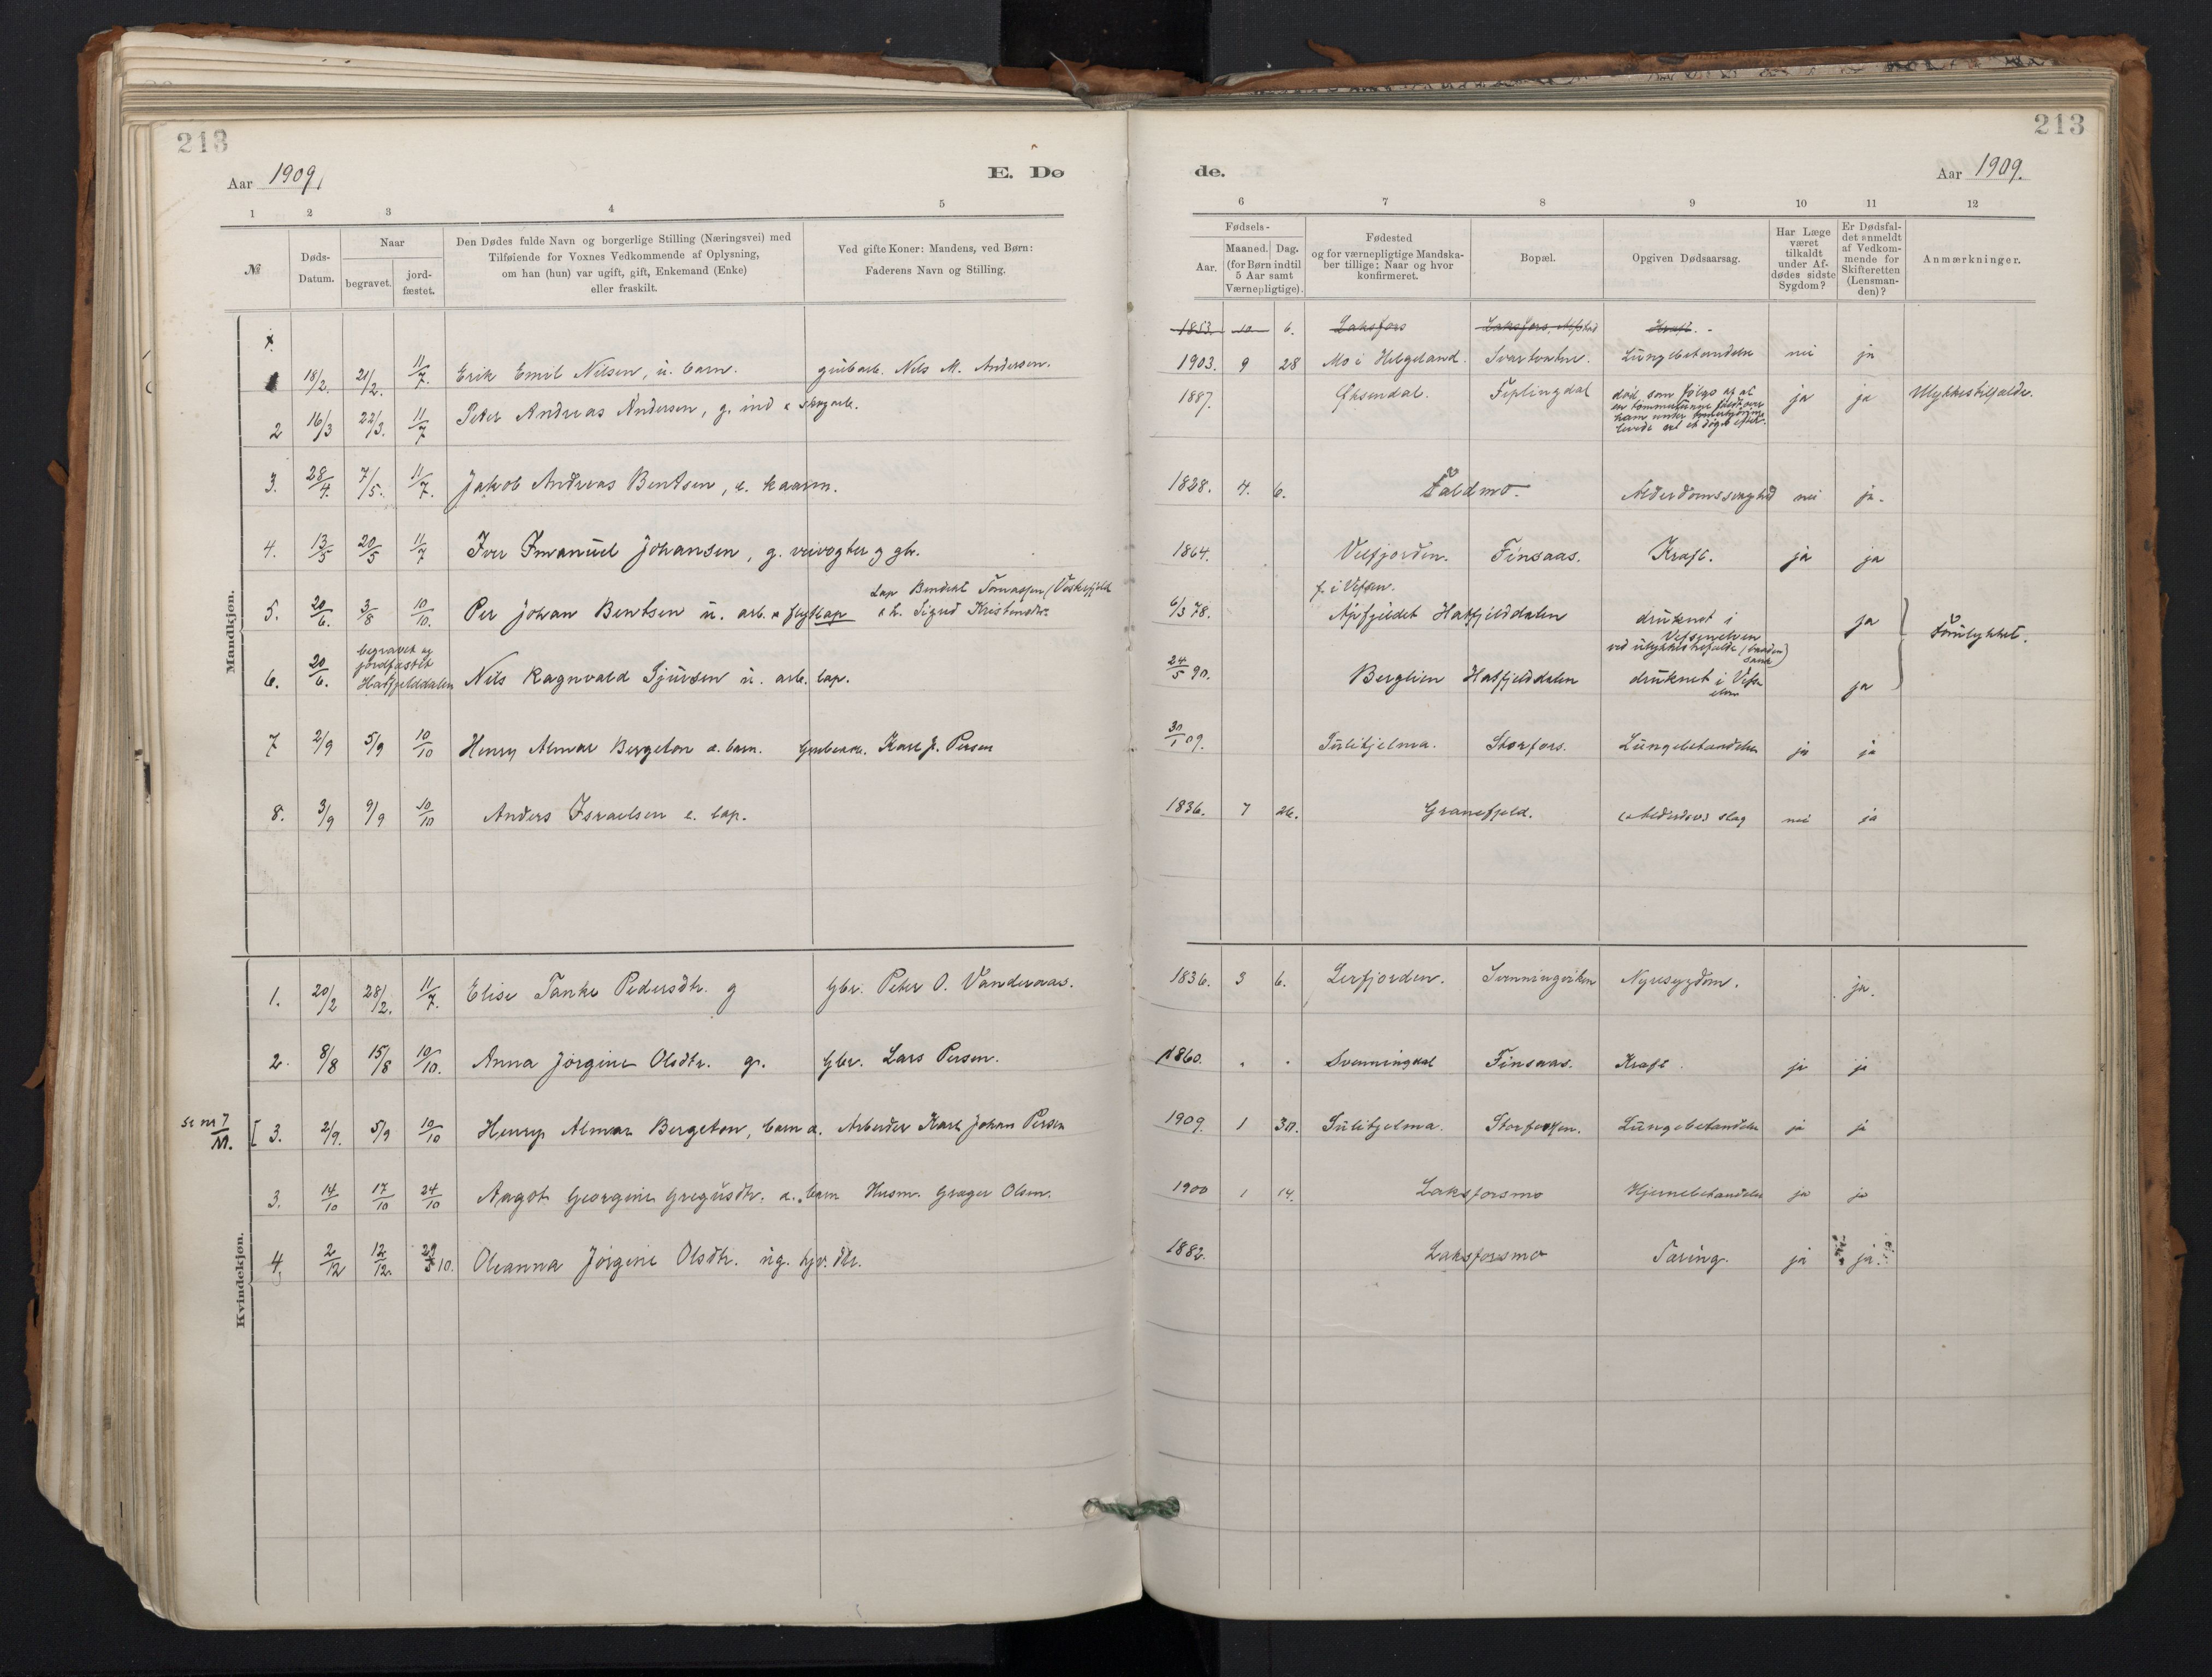 213
213
Aar 1909.
E. Dø
de.
Aar 1909.
1 2 3 4 5
6 7 8 9 10 11 12
№
Døds-Datum.
Naar
begravet.
jord-fæstet.
Den Dødes fulde Navn og borgerlige Stilling (Næringsvei) med
Tilføiende for Voxnes Vedkommende af Oplysning,
om han (hun) var ugift, gift, Enkemand (Enke)
eller fraskilt.
Ved gifte Koner: Mandens, ved Børn:
Faderens Navn og Stilling.
Fødsels-
Aar.
Maaned. Dag.
(for Børn indtil
5 Aar samt
Værnepligtige).
Fødested
og for værnepligtige Mandska-
ber tillige: Naar og hvor
konfirmeret.
Bopæl.
Opgiven Dødsaarsag.
Har Læge
været
tilkaldt
under Af-
dødes sidste
Sygdom?
Er Dødsfal-
det anmeldt
af Vedkom-
mende for
Skifteretten
(Lensman-
den)?
Anmærkninger.
Mandkjøn.
1853. 10 6. Laksfors Laksfors, Kraft.
18/2. 21/2. 11/7. Erik Emil Nilsen, u. barn. grubearb. Nils M. Andersen. 1903. 9 28 Mo i Helgeland. Svartvatne. Lungebetændelse nei ja
2 16/3 22/3. 11/7 Peter Andreas Andersen, g. ind. & skogarb. 1887. Øksendal. Fiplingdal død som følge af at
en tømmerlunne faldt over
ham under tømmerkjøring,
levede vel et døgn efter.
ja ja Ulykkestilfælde.
3. 28/4. 7/5. 11/7. Jakob Andreas Bentsen, e. kaarm. 1828. 4. 6. Faldmo. Alderdomssvaghed nei ja.
4. 13/5 20/5 11/7 Iver Imanuel Johansen, g. veivogter og gbr. 1864. Velfjorden. Finsaas. Kraft. ja ja
5. 20/6. 3/8 10/10. Per Johan Bentsen u. arb. & flytlap Lap Bendikt Tomassen (Voskefjeld
& h. Sigrid Kristensdtr. 6/3 78. f. i Vefsen.
Apfjeldet Hatfjelddalen druknet i
Vefsenelven
ved ulykkestilfælde
ja
Forulykket.
6. 20/6. begravet og
jordfæstet
Hatfjelddalen Nils Ragnvald Sjursen u. arb. lap. 24/5 90. Berglien Hatfjelddalen druknet i Vefsn
elva ja
7 2/9 5/9 10/10 Henry Almar Bergeton u. barn. Grubearb. Karl J. Persen 30/1 09. Sulitjelma. Storfors. Lungebetændelse ja ja
8. 3/9 9/9 10/10 Anders Israelsen e. lap. 1836. 7 26. Granefjeld. Alderdoms slag nei ja
Kvindekjøn.
1. 20/2 28/2. 11/7. Elise Tanke Pedersdtr. g Gbr. Peter O. Vanderaas. 1836. 3 6. Lerfjorden. Svenningviken Nyresygdom. ja.
2. 8/8 15/8 10/10. Anna Jørgine Olsdtr. g. Gbr. Lars Persen. 1860. Svenningdal Finsaas. Kraft. ja ja
se nr 7
M. [ 3. 2/9. 5/9 10/10 Henry Almar Bergeton, barn u. Arbeider Karl Johan Persen 1909. 1 30. Sulitjelma. Storforsen. Lungebetændelse ja ja
3. 14/10 17/10 24/10 Aagot Georgine Gregusdtr. u. barn Husm. Græger Olsen. 1900 1 14. Laksforsmo Hjernebetændelse ja ja
4. 2/12 12/12. 10. Oleanna Jørgine Olsdtr. ug. gbr. dtr. 1882. Laksforsmo Tæring. ja ja.